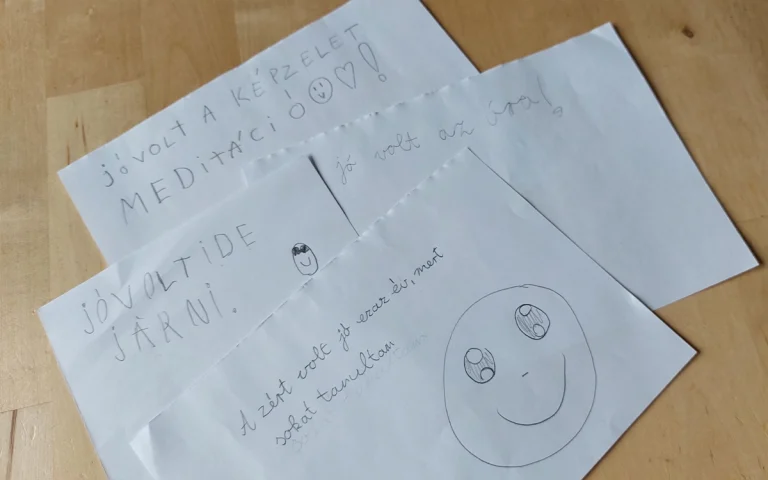 jóVOLT A KÉPZELET
MEDITÁCIÓ!
jó volt az óra!
JÓVOLT IDE
JÁRNI.
A zért volt jó ezaz év, mert
sokat tanultam